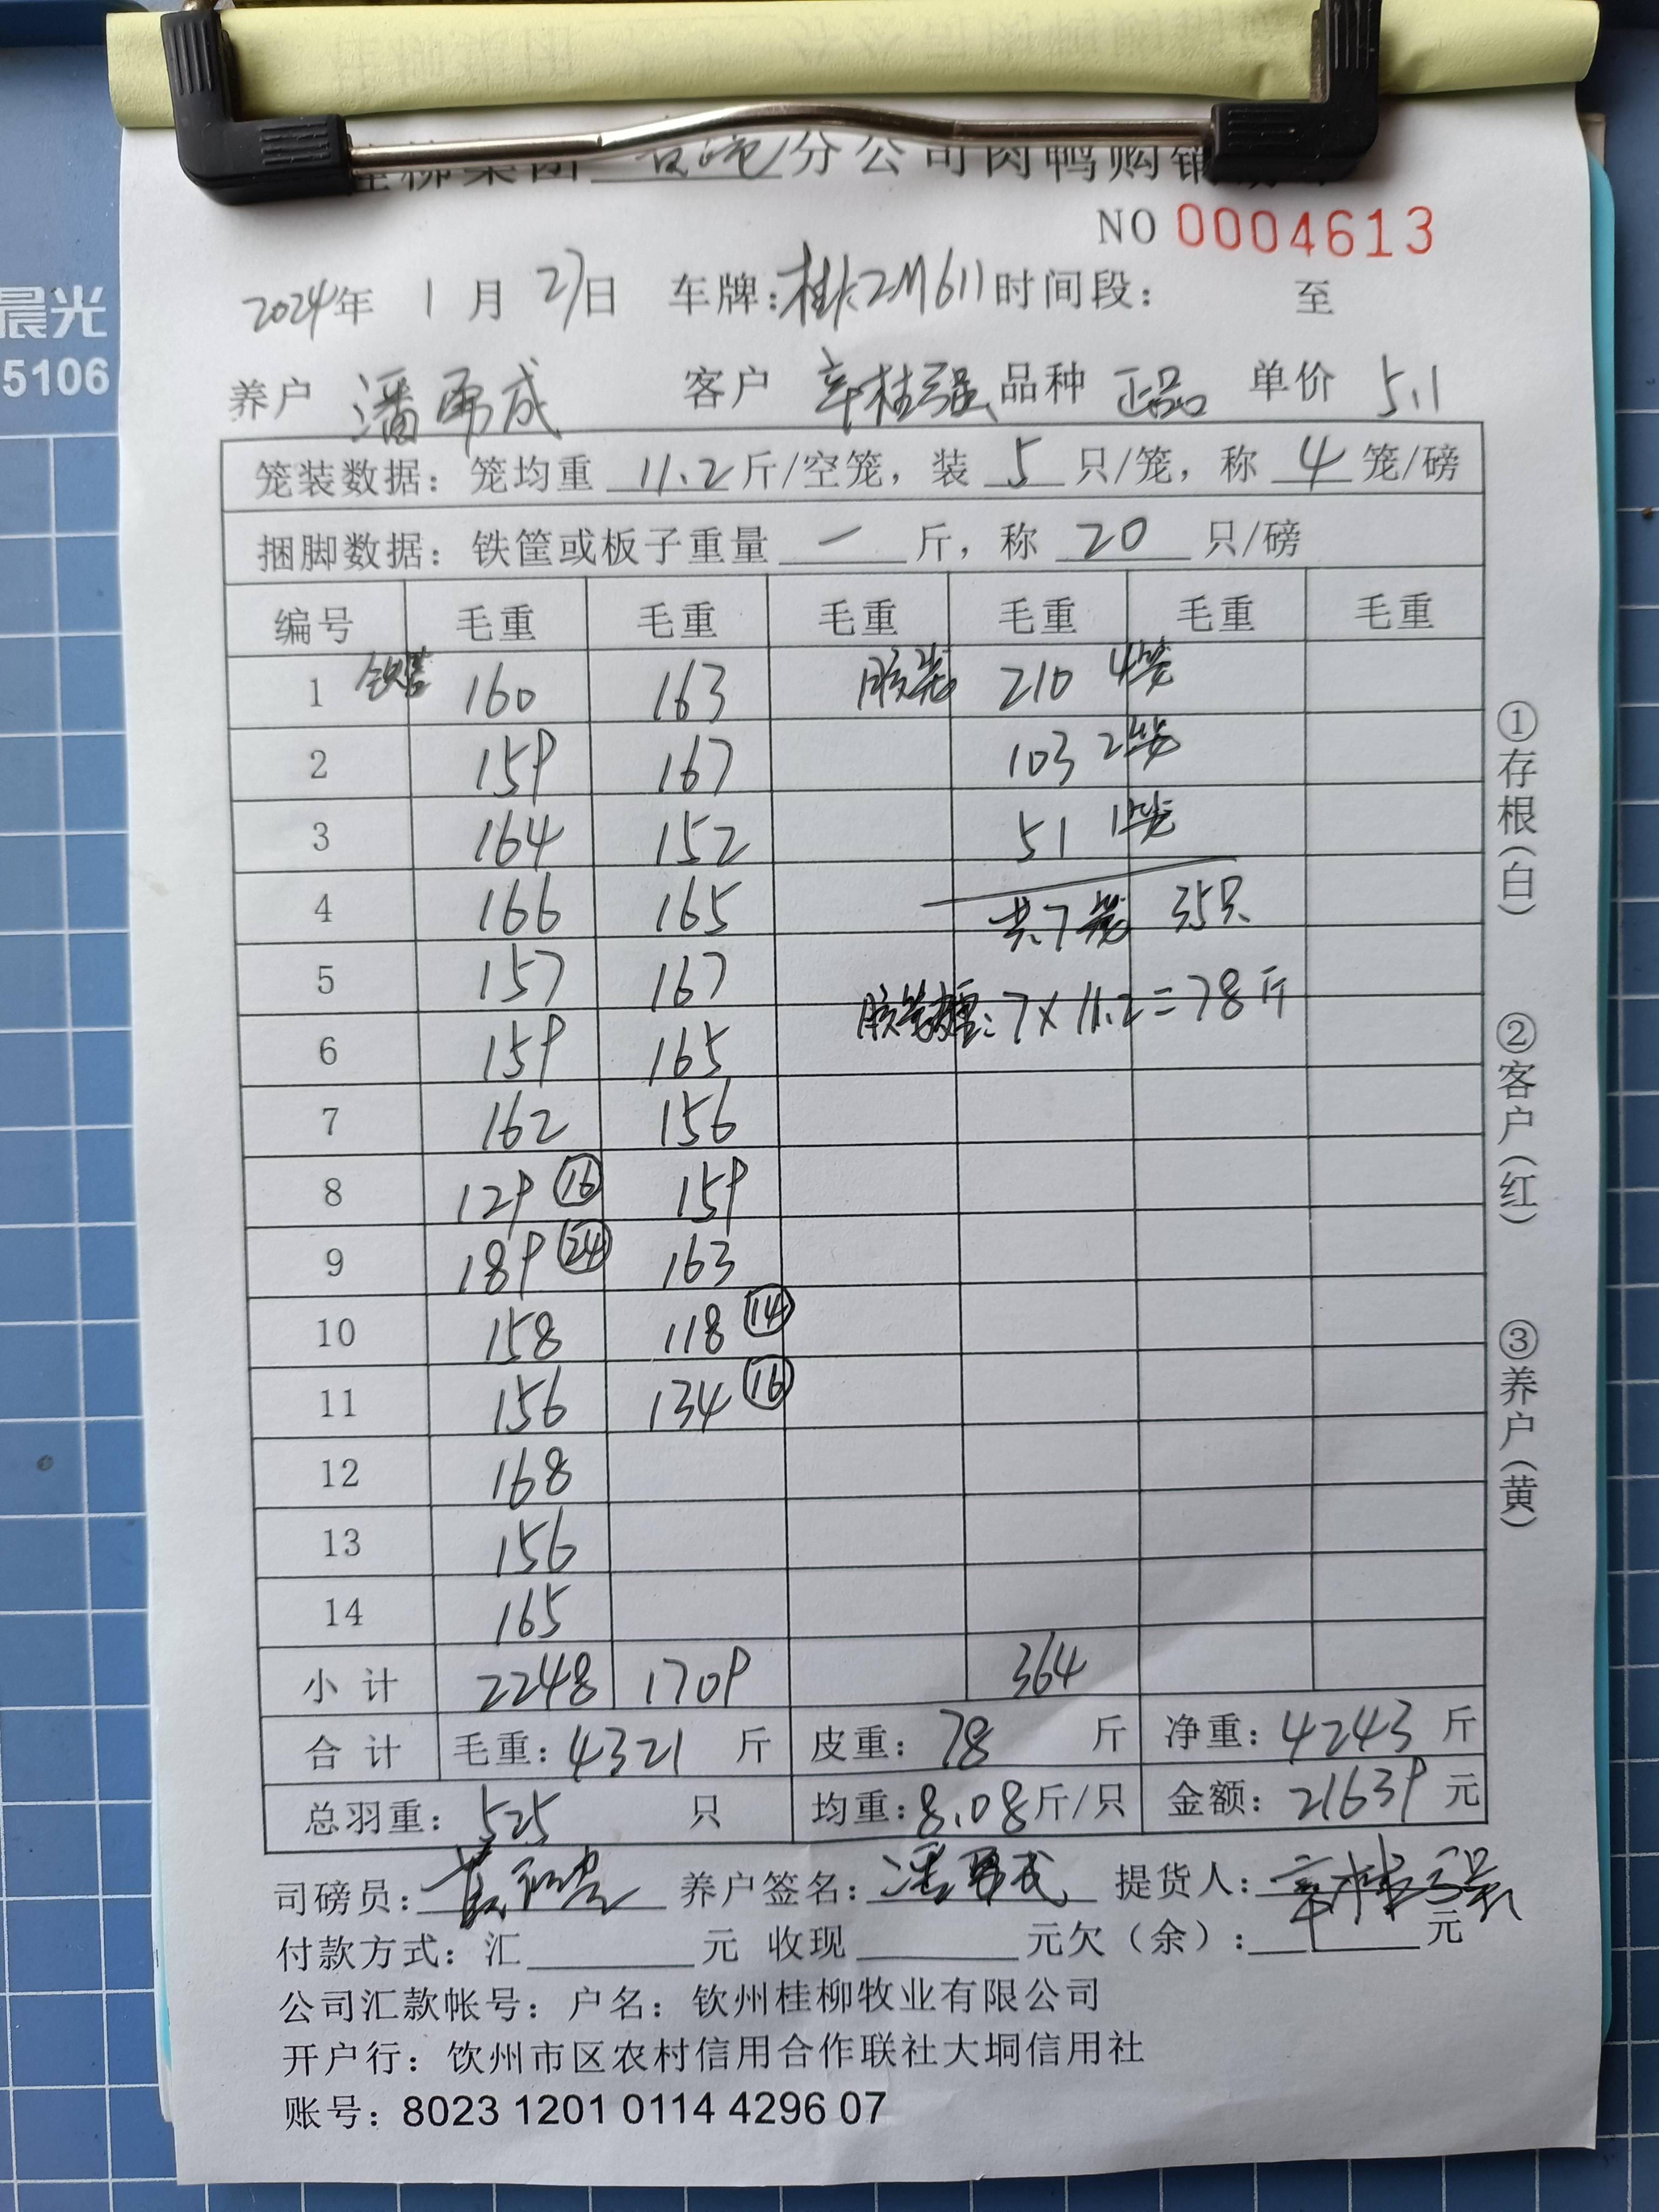 分公司肉鸭购销
NO 0004613
2024年 1 月 27日 车牌: 时间段: 至
晨光
5106
养户 潘 成 客户 辛桂强 品种 正品 单价 5.1
笼装数据: 笼均重 11.2 斤/空笼, 装 5 只/笼, 称 4 笼/磅
捆脚数据: 铁筐或板子重量 一 斤, 称 20 只/磅
编号 毛重 毛重 毛重 毛重 毛重 毛重
1 160 163 胶笼 210 4笼
2 159 167 103 2笼
3 164 152 51 1笼
4 166 165 共7笼 35只
5 157 167
胶笼 重: 7×11.2=78斤
6 159 165
7 162 156
8 129 ⑯ 159
9 189 ㉔ 163
10 158 118 ⑭
11 156 134 ⑯
12 168
13 156
14 165
小计 2248 1709 364
合计 毛重: 4321 斤 皮重: 78 斤 净重: 4243 斤
总羽重: 525 只 均重: 8.08斤/只 金额: 21639 元
①存根(白)
②客户(红)
③养户(黄)
司磅员: 养户签名: 潘 成 提货人: 辛桂强
付款方式: 汇 元 收现 元欠(余): 元
公司汇款帐号: 户名: 钦州桂柳牧业有限公司
开户行: 钦州市区农村信用合作联社大垌信用社
账号: 8023 1201 0114 4296 07